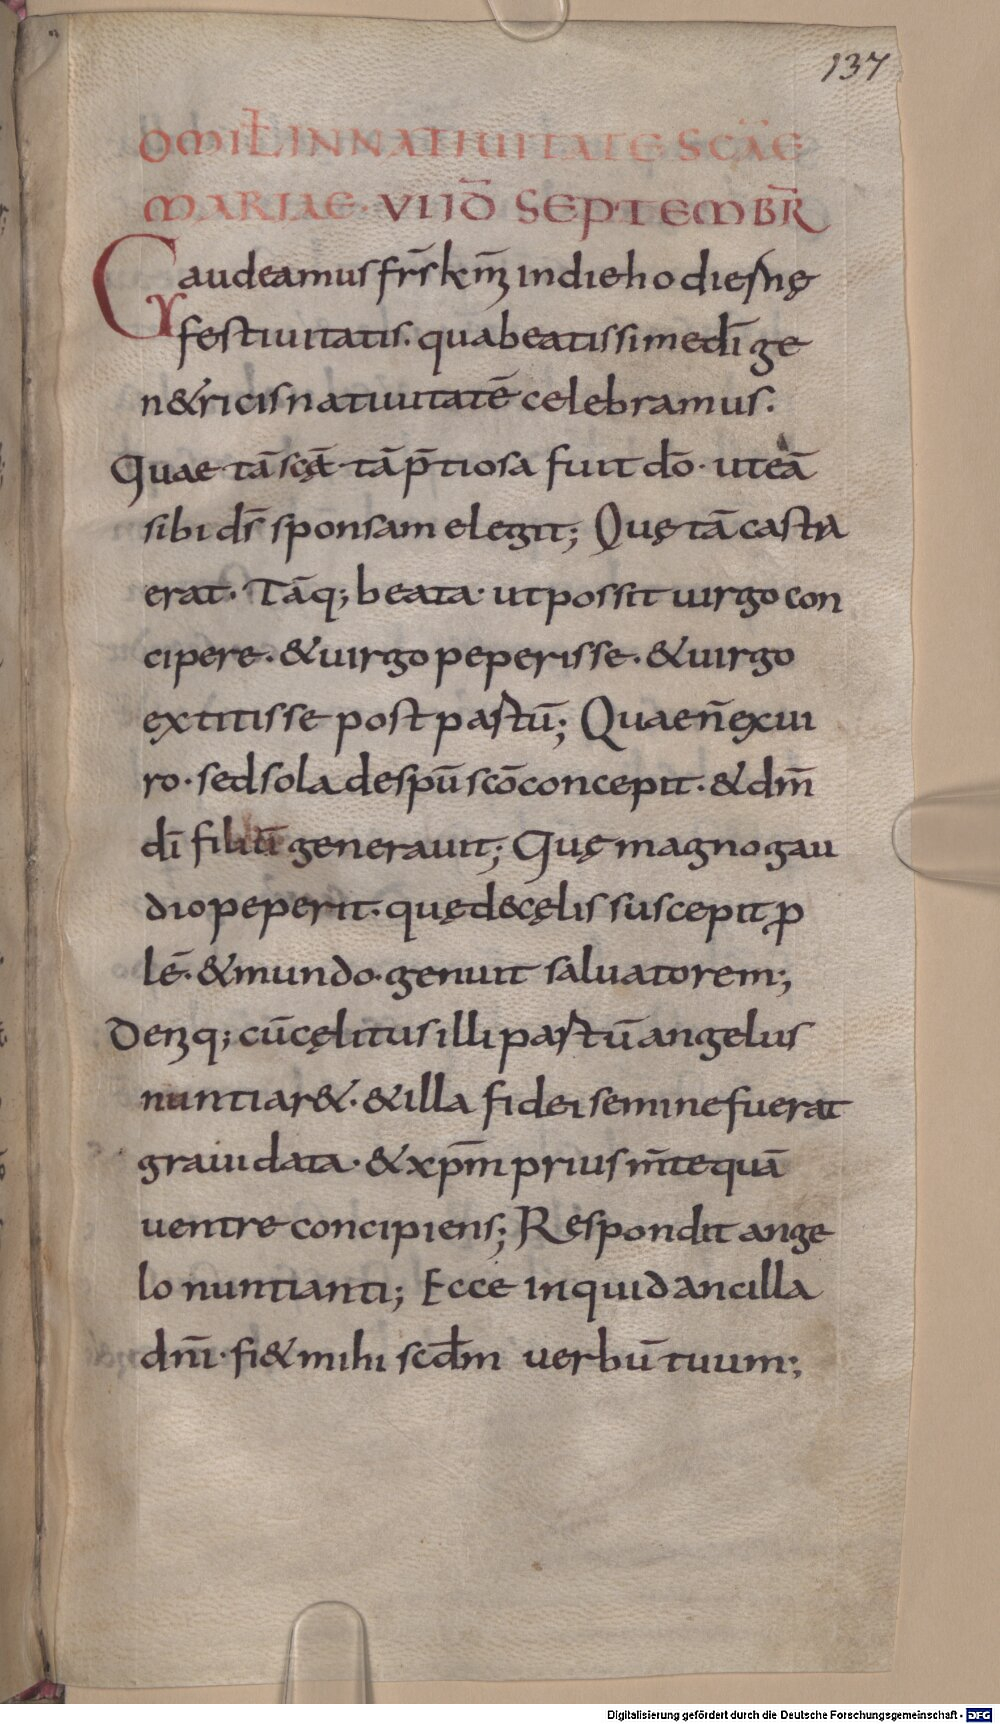 137
OMIŁ IN NATIUITATE SCĀE
MARIAE · VII ID̄ SEPTEMBR̄
Gaudeamus fr̄s km̄ in die hodiernę
festiuitatis. qua beatissime dī ge
n&ricis natiuitatē celebramus.
Quae tā scā tā p̄tiosa fuit dō · ut eā
sibi ds̄ sponsam elegit; Quę tā casta
erat. Tāq; beata · ut possit uirgo con
cipere · & uirgo peperisse · & uirgo
extitisse post partū; Quae n̄ ex ui
ro · sed sola de spū scō concepit · & dm̄
dī filiū generauit; Quę magno gau
dio peperit · quę de cęlis suscepit ꝓ
lē · & mundo · genuit saluatorem;
Deniq; cū cęlitus illi partū angelus
nuntiar& · & illa fidei semine fuerat
grauidata · & xpm̄ prius m̄te quā
uentre concipiens; Respondit ange
lo nuntianti; Ecce inquid ancilla
dn̄i · fi& mihi scdm̄ uerbū tuum;
Digitalisierung gefördert durch die Deutsche Forschungsgemeinschaft - DFG